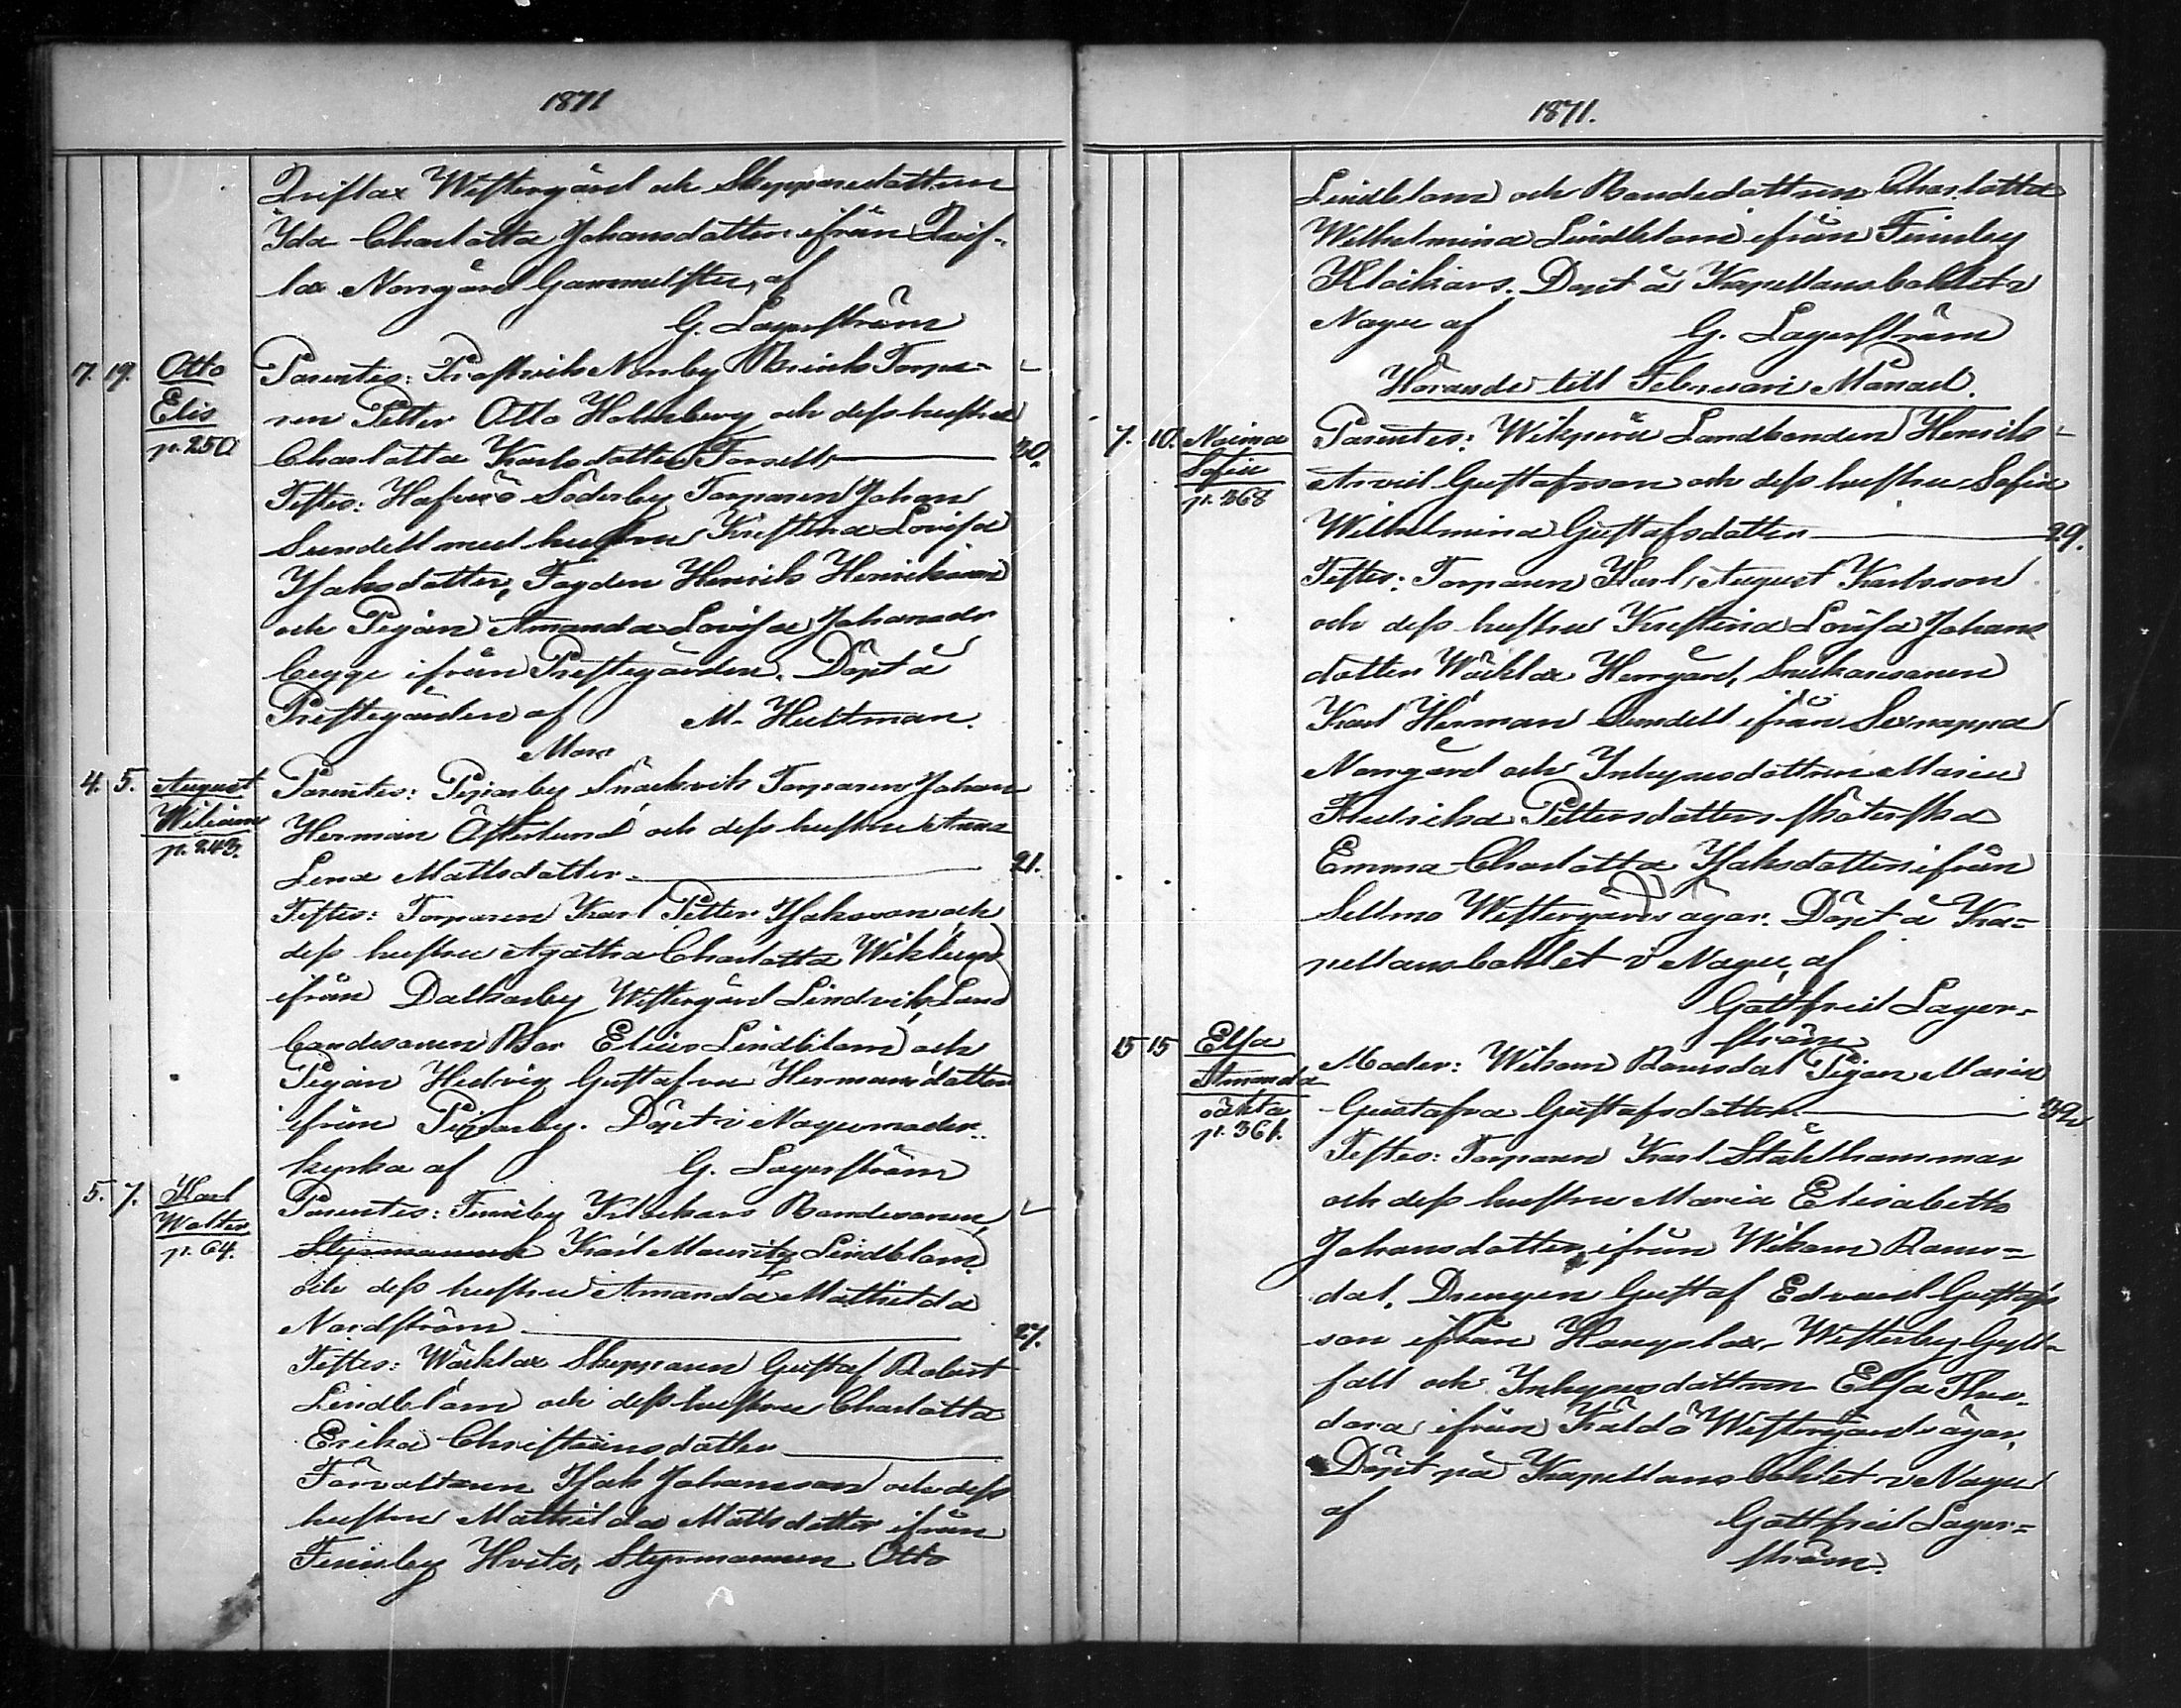 1871
Qviflax Westergård och Skepparedottren
Ida Charlotta Johansdotter ifrån Qvif-
lax Norrgård Gammelster, af
G. Lagerström
7. 19. Otto Elis p. 250
Parentes: Prostvik Norrby Torpa-
ren Petter Otto Holmberg och dess hustru
Charlotta Karlsdotter Forsell 30.
Testes: Hafverö Söderby Torparen Johan
Sundell med hustru Kristina Lovisa
Isaksdotter, Fogden Henrik Henriksson
och Pigan Amanda Lovisa Johansdr
begge ifrån Prestegården. Döpt å
Prestegården af M. Hultman.
Mars
4. 5. August Wiliam p. 243.
Parentes: Pijparby Snäckvik Torparen Johan
Herman Österlund och dess hustru Anna
Lena Mattsdotter 21.
Testes: Torparen Karl Petter Isaksson och
dess hustru Agatha Charlotta Wiklund
ifrån Dalkarby Westergård Lindvik, Land
bondesonen Elias Lindblom och
Pigan Hedvig Gustafva Hermansdotter
ifrån Pijparby. Döpt i Nagu moder-
kyrka af G. Lagerström
5. 7. Karl Walter p. 64.
Parentes: Finnby Klockars Bondesonen,
Styrmannen Karl Mauritz Lindblom
och dess hustru Amanda Mathilda
Nordström 27.
Testes: Wäcklax Skepparen Gustaf Robert
Lindblom och dess hustru Charlotta
Erika Christiansdotter
Förvaltaren Isak Johansson och dess
hustru Mathilda Mattsdotter ifrån
Finnby Hvits, Styrmannen Otto
1871.
Lindblom och Bondedottren Charlotta
Wilhelmina Lindblom ifrån Finnby
Klockars. Döpt å Kapellansbohlet i
Nagu af G. Lagerström
Hörande till Februari Månad.
7. 10. Naima Sofia p. 368
Parentes: Landbonden Henrik
Arvid Gustafsson och dess hustru Sofia
Wilhelmina Gustafsdotter 29.
Testes: Torparen Karl August Karlsson
och dess hustru Kristina Lovisa Johans
dotter Wäcklax Herrgård, Snickaresonen
Karl Herman Sundell ifrån Sexnappa
Norrgård och Inhysesdottren Maria
Fredrika Pettersdotter
Emma Charlotta Isaksdotter ifrån
Sellmo Westergårds ägor. Döpt å Ka-
pellansbohlet i Nagu, af
Gottfrid Lager-
ström
15 15 Elsa Amanda oäkta p. 361.
Moder: Wikom Ramsdal Pigan Maria
Gustafva Gustafsdotter 32
Testes: Torparen Karl Stålhammar
och dess hustru Maria Elisabeth
Johansdotter, ifrån Wikom Rams-
dal, Drengen Gustaf Edvard Gustafs
son ifrån Haverlax Westerby Gyll-
fall och Inhysesdottren Elsa Theo-
dora ifrån Käldö Westergårds ägor.
Döpt på Kapellansbohlet i Nagu
af Gottfrid Lager-
ström.